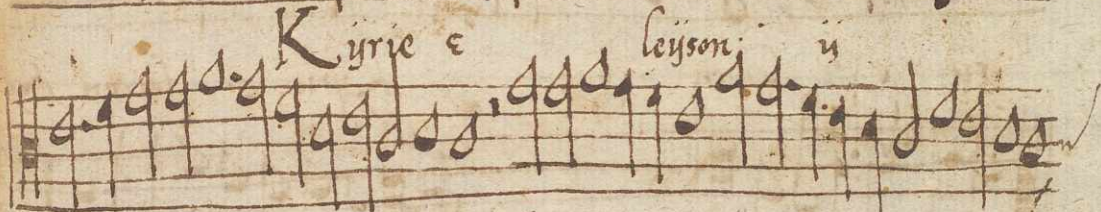 Kÿrie e leÿson: ij